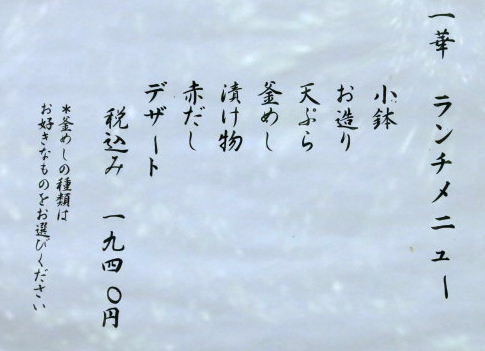 一華 ランチメニュー
小鉢
お造り
天ぷら
釜めし
漬け物
赤だし
デザート
税込み 一九四〇円
＊釜めしの種類は
お好きなものをお選びください